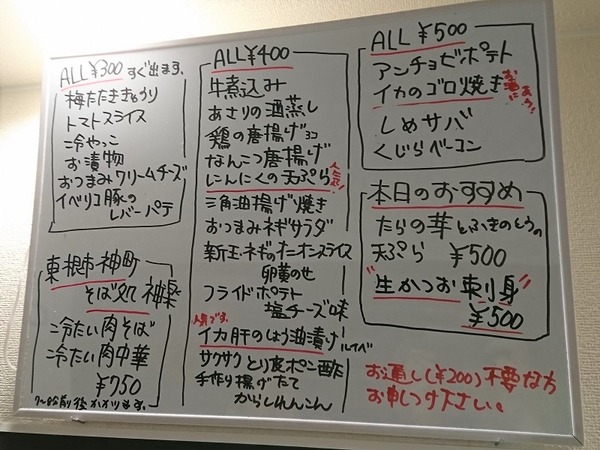 ALL ¥300 すぐ出ます、
梅たたききゅうり
トマトスライス
冷やっこ
お漬物
おつまみクリームチーズ
イベリコ豚の
レバーパテ
東根市神町
そば処 神楽
冷たい肉そば
冷たい肉中華
¥750
7〜8分前後かかります、
ALL ¥400
牛煮込み
あさりの酒蒸し
鶏の唐揚げ
なんこつ唐揚げ
にんにくの天ぷら 人気!
三角油揚げ焼き
おつまみネギサラダ
新玉ネギのオニオンスライス
卵黄のせ
フライドポテト
塩チーズ味
人気です。
イカ肝のしょう油漬け ルイベ
サクサク とり皮ポン酢
手作り揚げたて
からしれんこん
ALL ¥500
アンチョビポテト
イカのゴロ焼き お酒にあう!
しめサバ
くじらベーコン
本日のおすすめ
たらの芽とふきのとうの
天ぷら ¥500
"生かつお刺身"
¥500
お通し(¥200)不要な方
お申しつけ下さい。